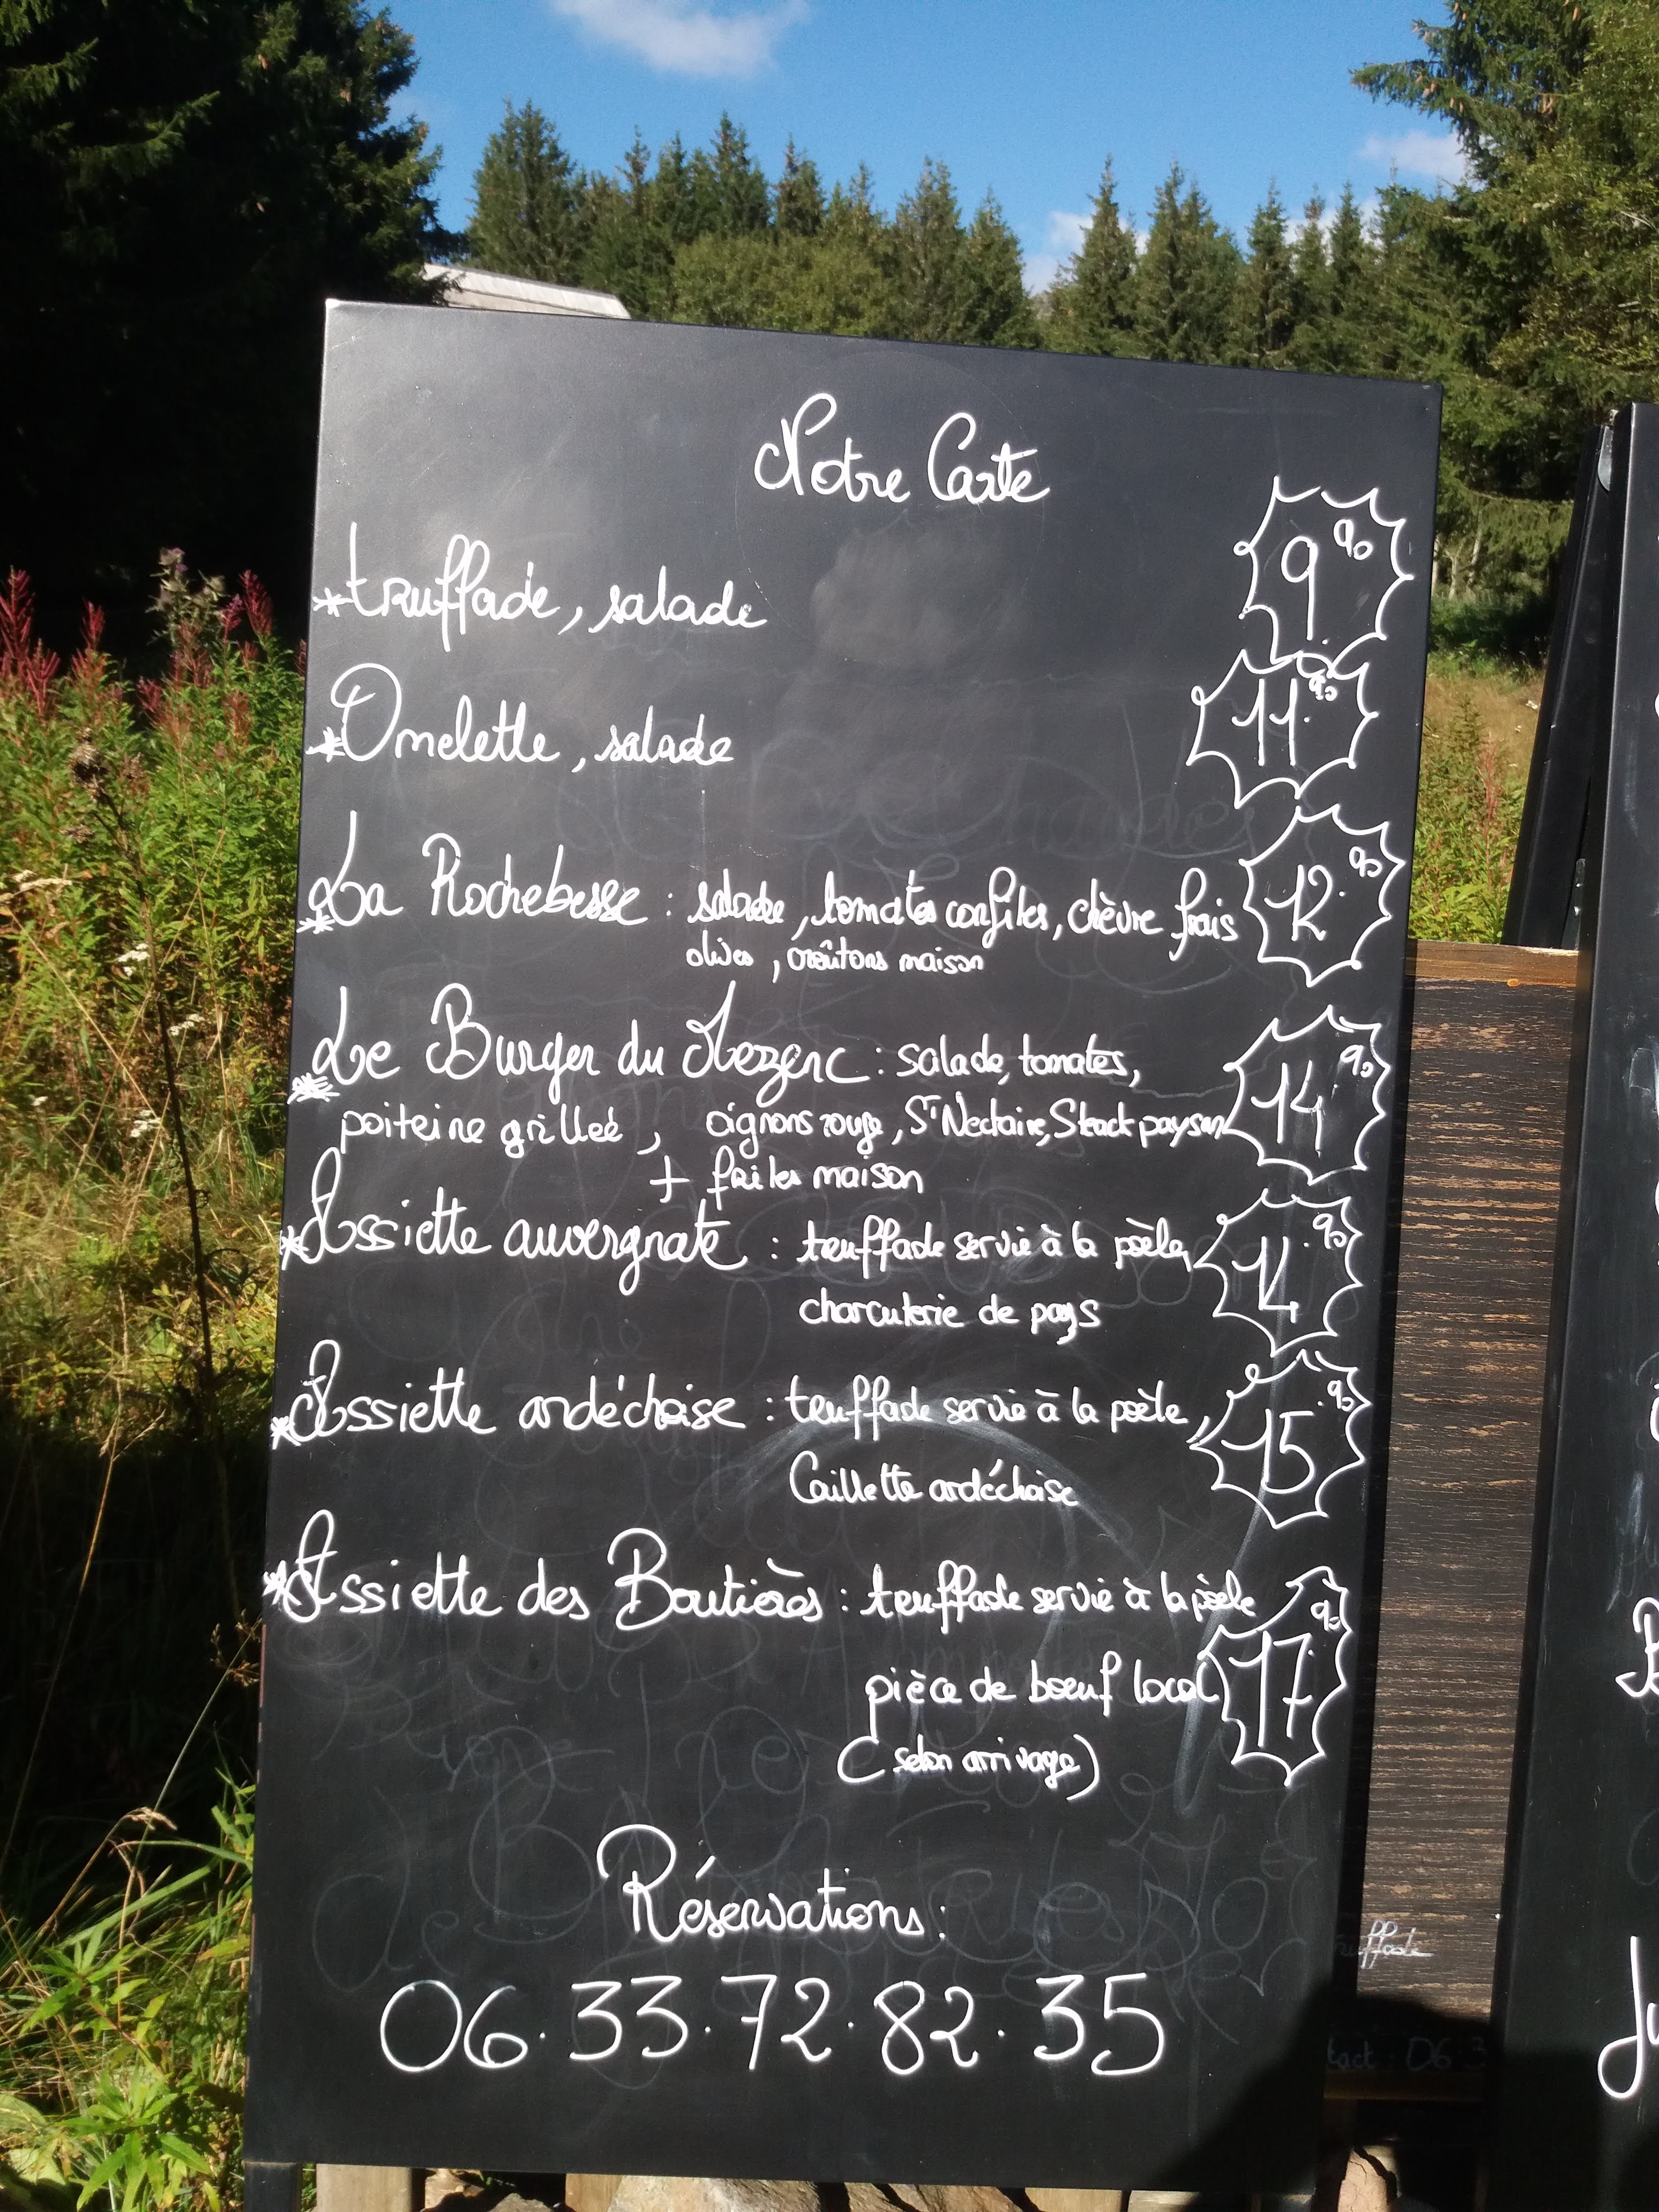 Notre Carte
*truffade, salade 9.90
*Omelette, salade 11.90
*La Rochebesse : salade, tomates confites, chèvre frais 12.90
olives, croûtons maison
*Le Burger du Mezenc : salade, tomates, 14.90
poiteine grilleé, oignons rouge, St Nectaire, Steack paysan
+ frites maison
*Assiette auvergnate : truffade servie à la poèle, 14.90
charcuterie de pays
*Assiette ardéchoise : truffade servie à la poèle, 15.90
Caillette ardéchoise
*Assiette des Boutières : truffade servie à la poèle 17.90
pièce de boeuf local
(selon arrivage)
Réservations :
06.33.72.82.35